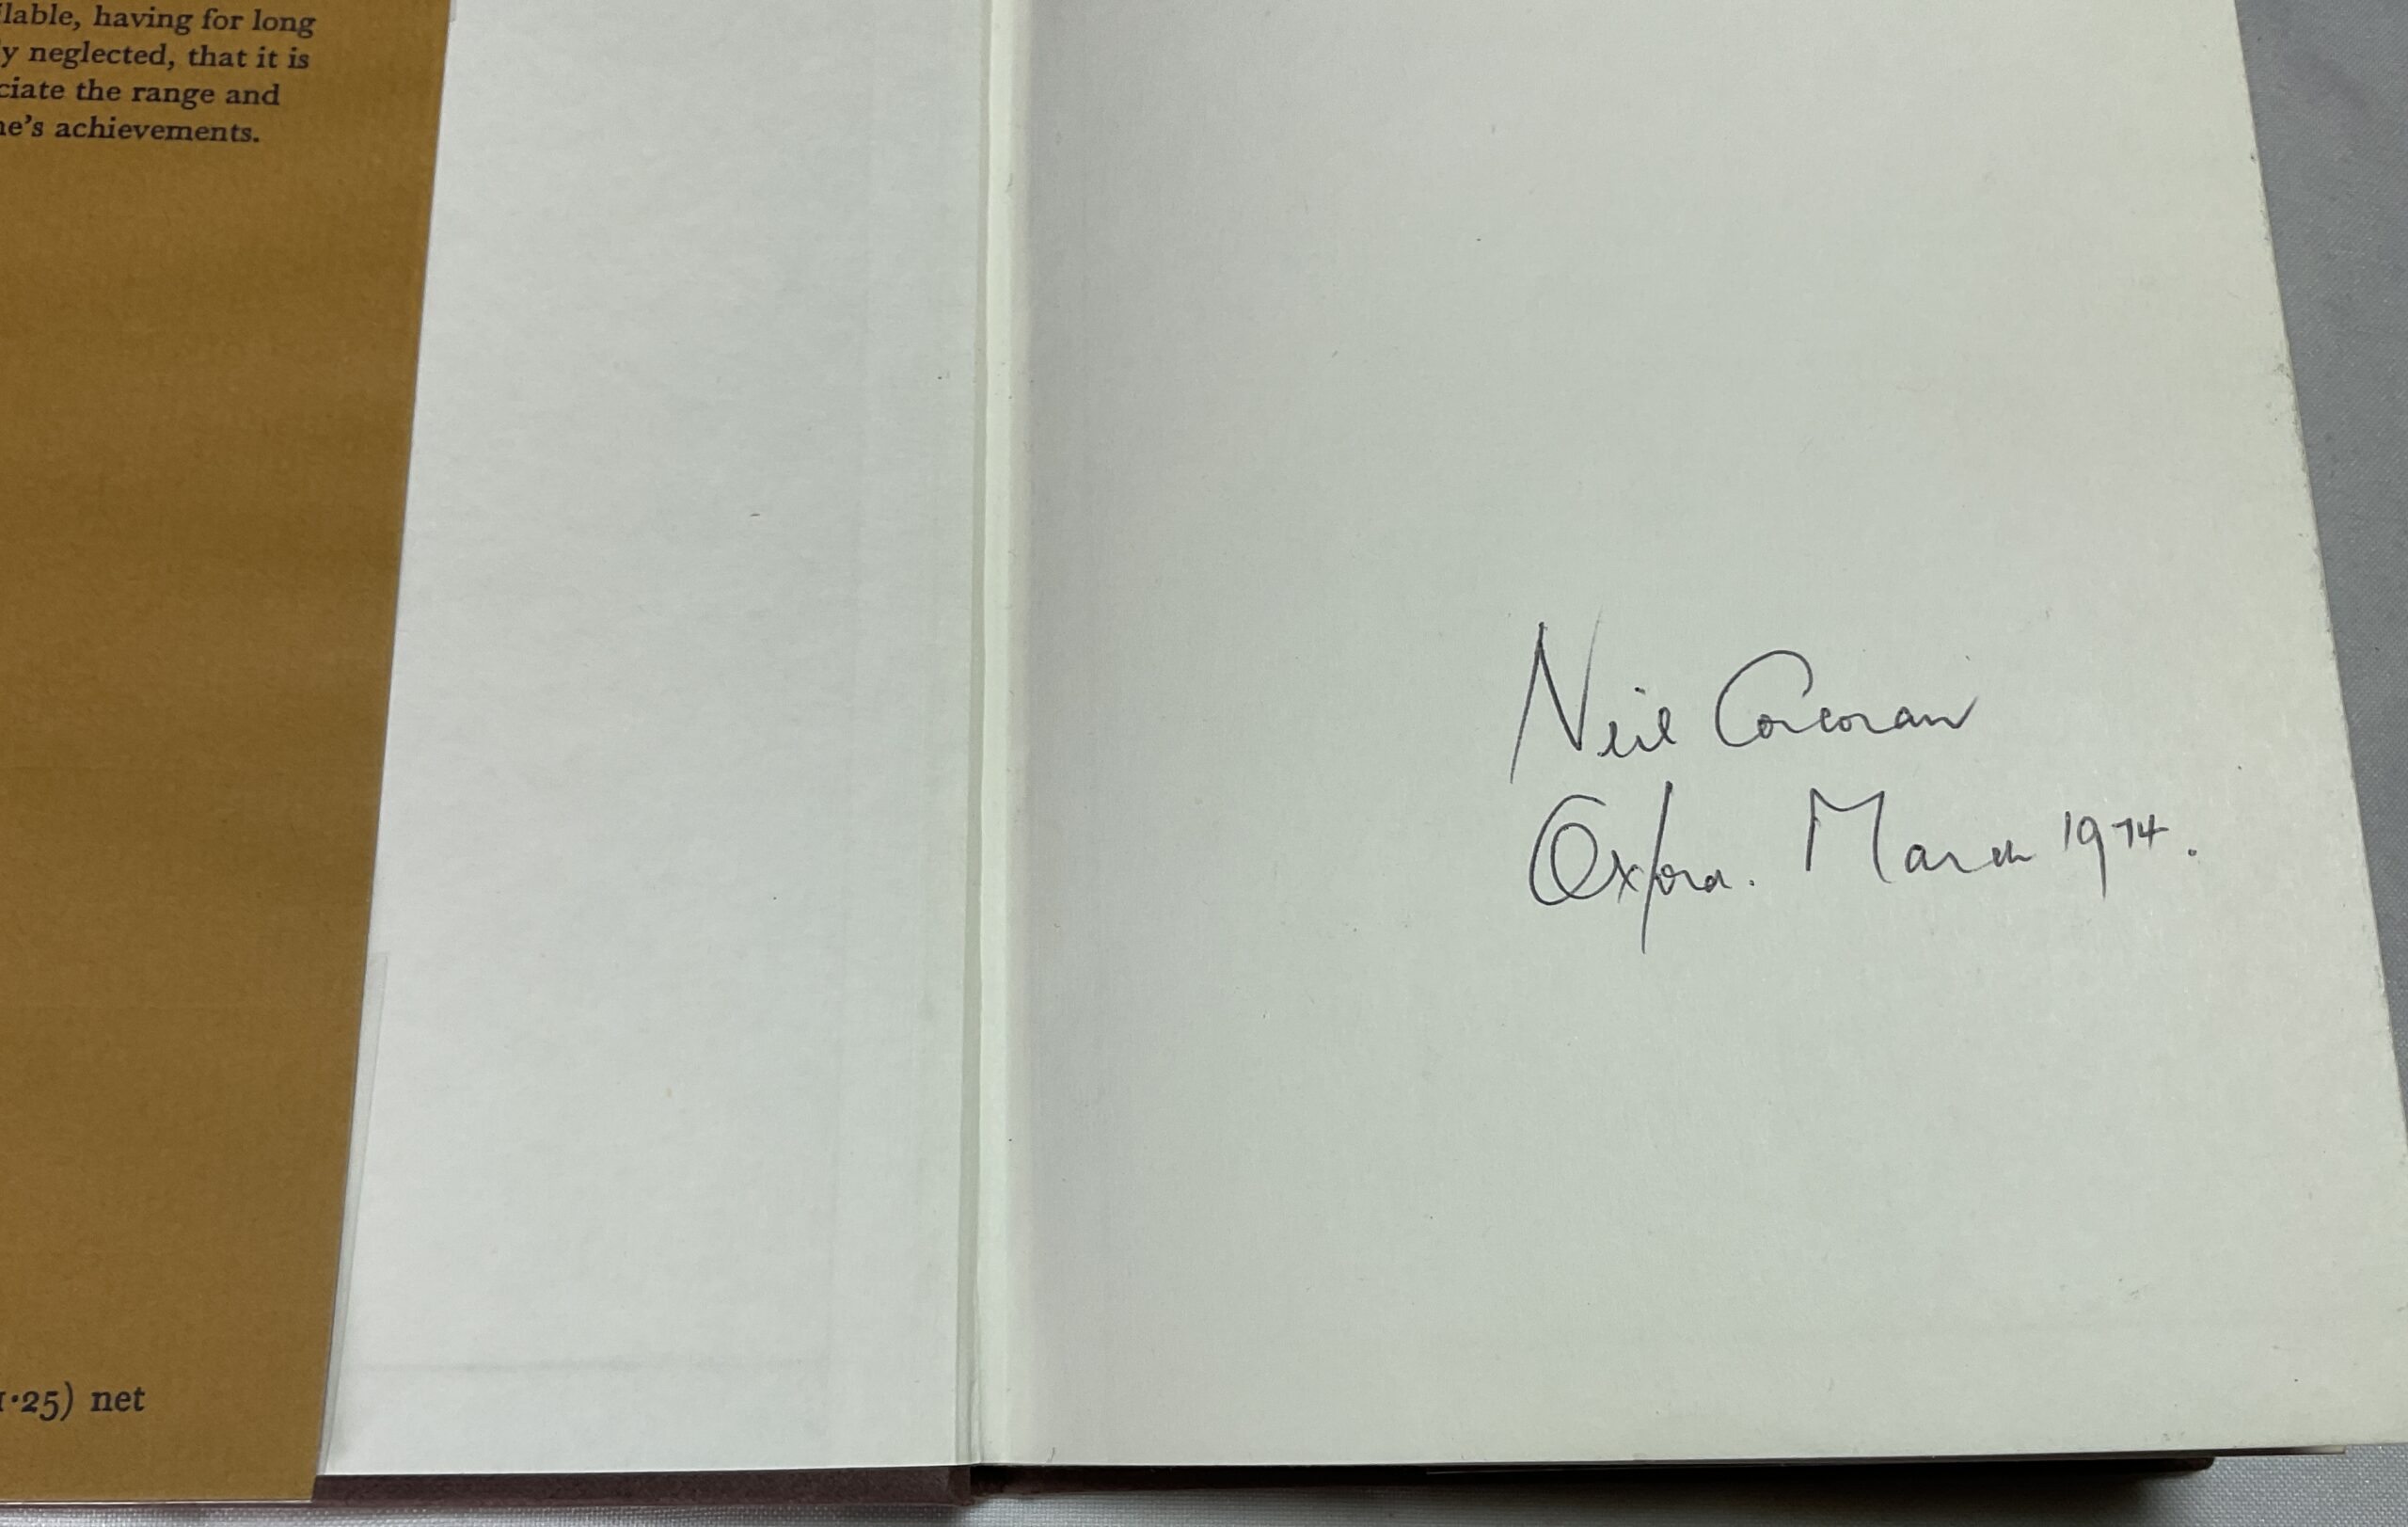 lable, having for long
y neglected, that it is
ciate the range and
ne's achievements.
1·25) net
Neil Corcoran
Oxford. March 1974.